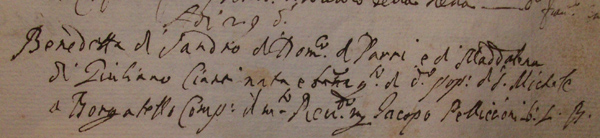 Adi 29 d.º
Benedetta di Sandro di Dom.co d Parri e di Maddalena
di Giuliano Ciani nata e q.to di d.o pop: di S. Michele
a Borgatello Comp: il m.to Rev.do Jacopo Pelliccioni